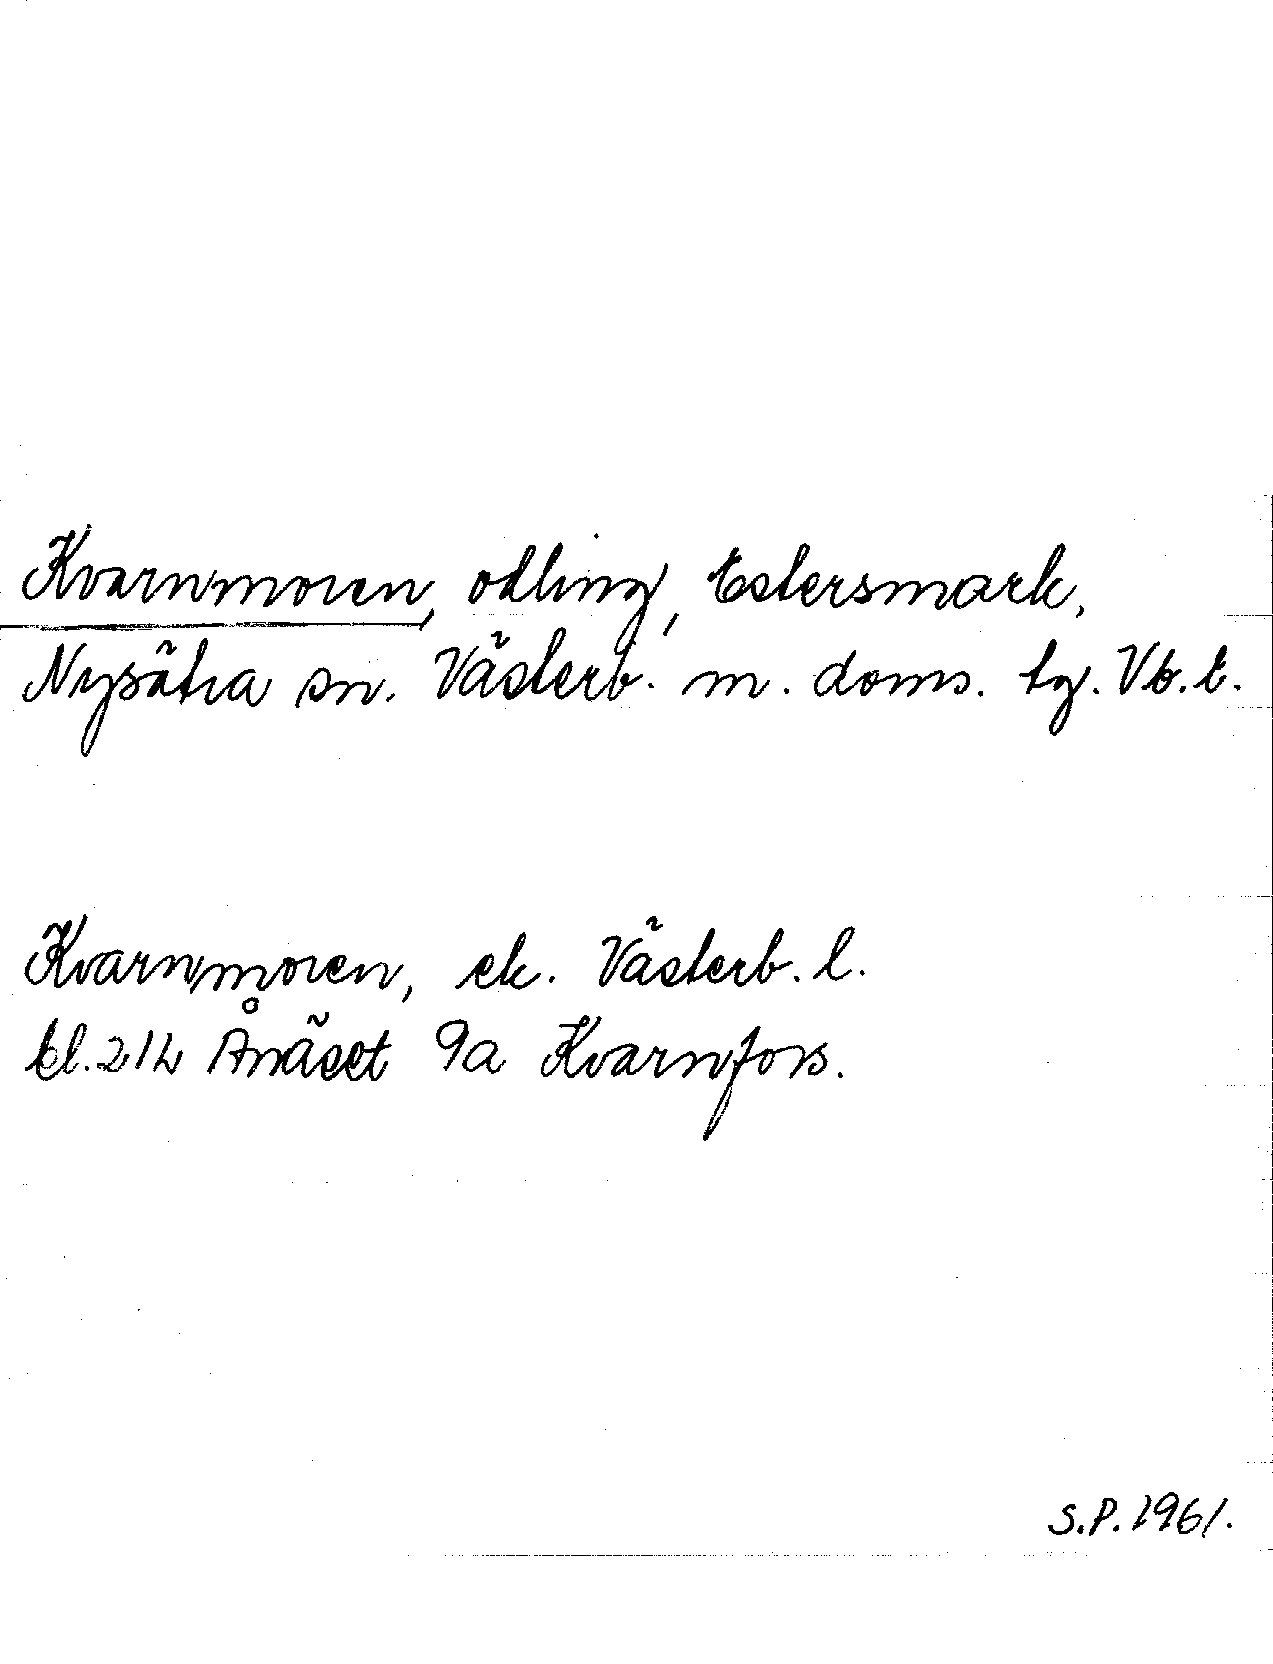 Kvarnmoren, odling, Estersmark,
Nysätra sn. Västerb. m. doms. tg. Vb. l.
Kvarnmoren, ek. Västerb. l.
bl. 21h Ånäset 9a Kvarnfors.
S.P. 1961.